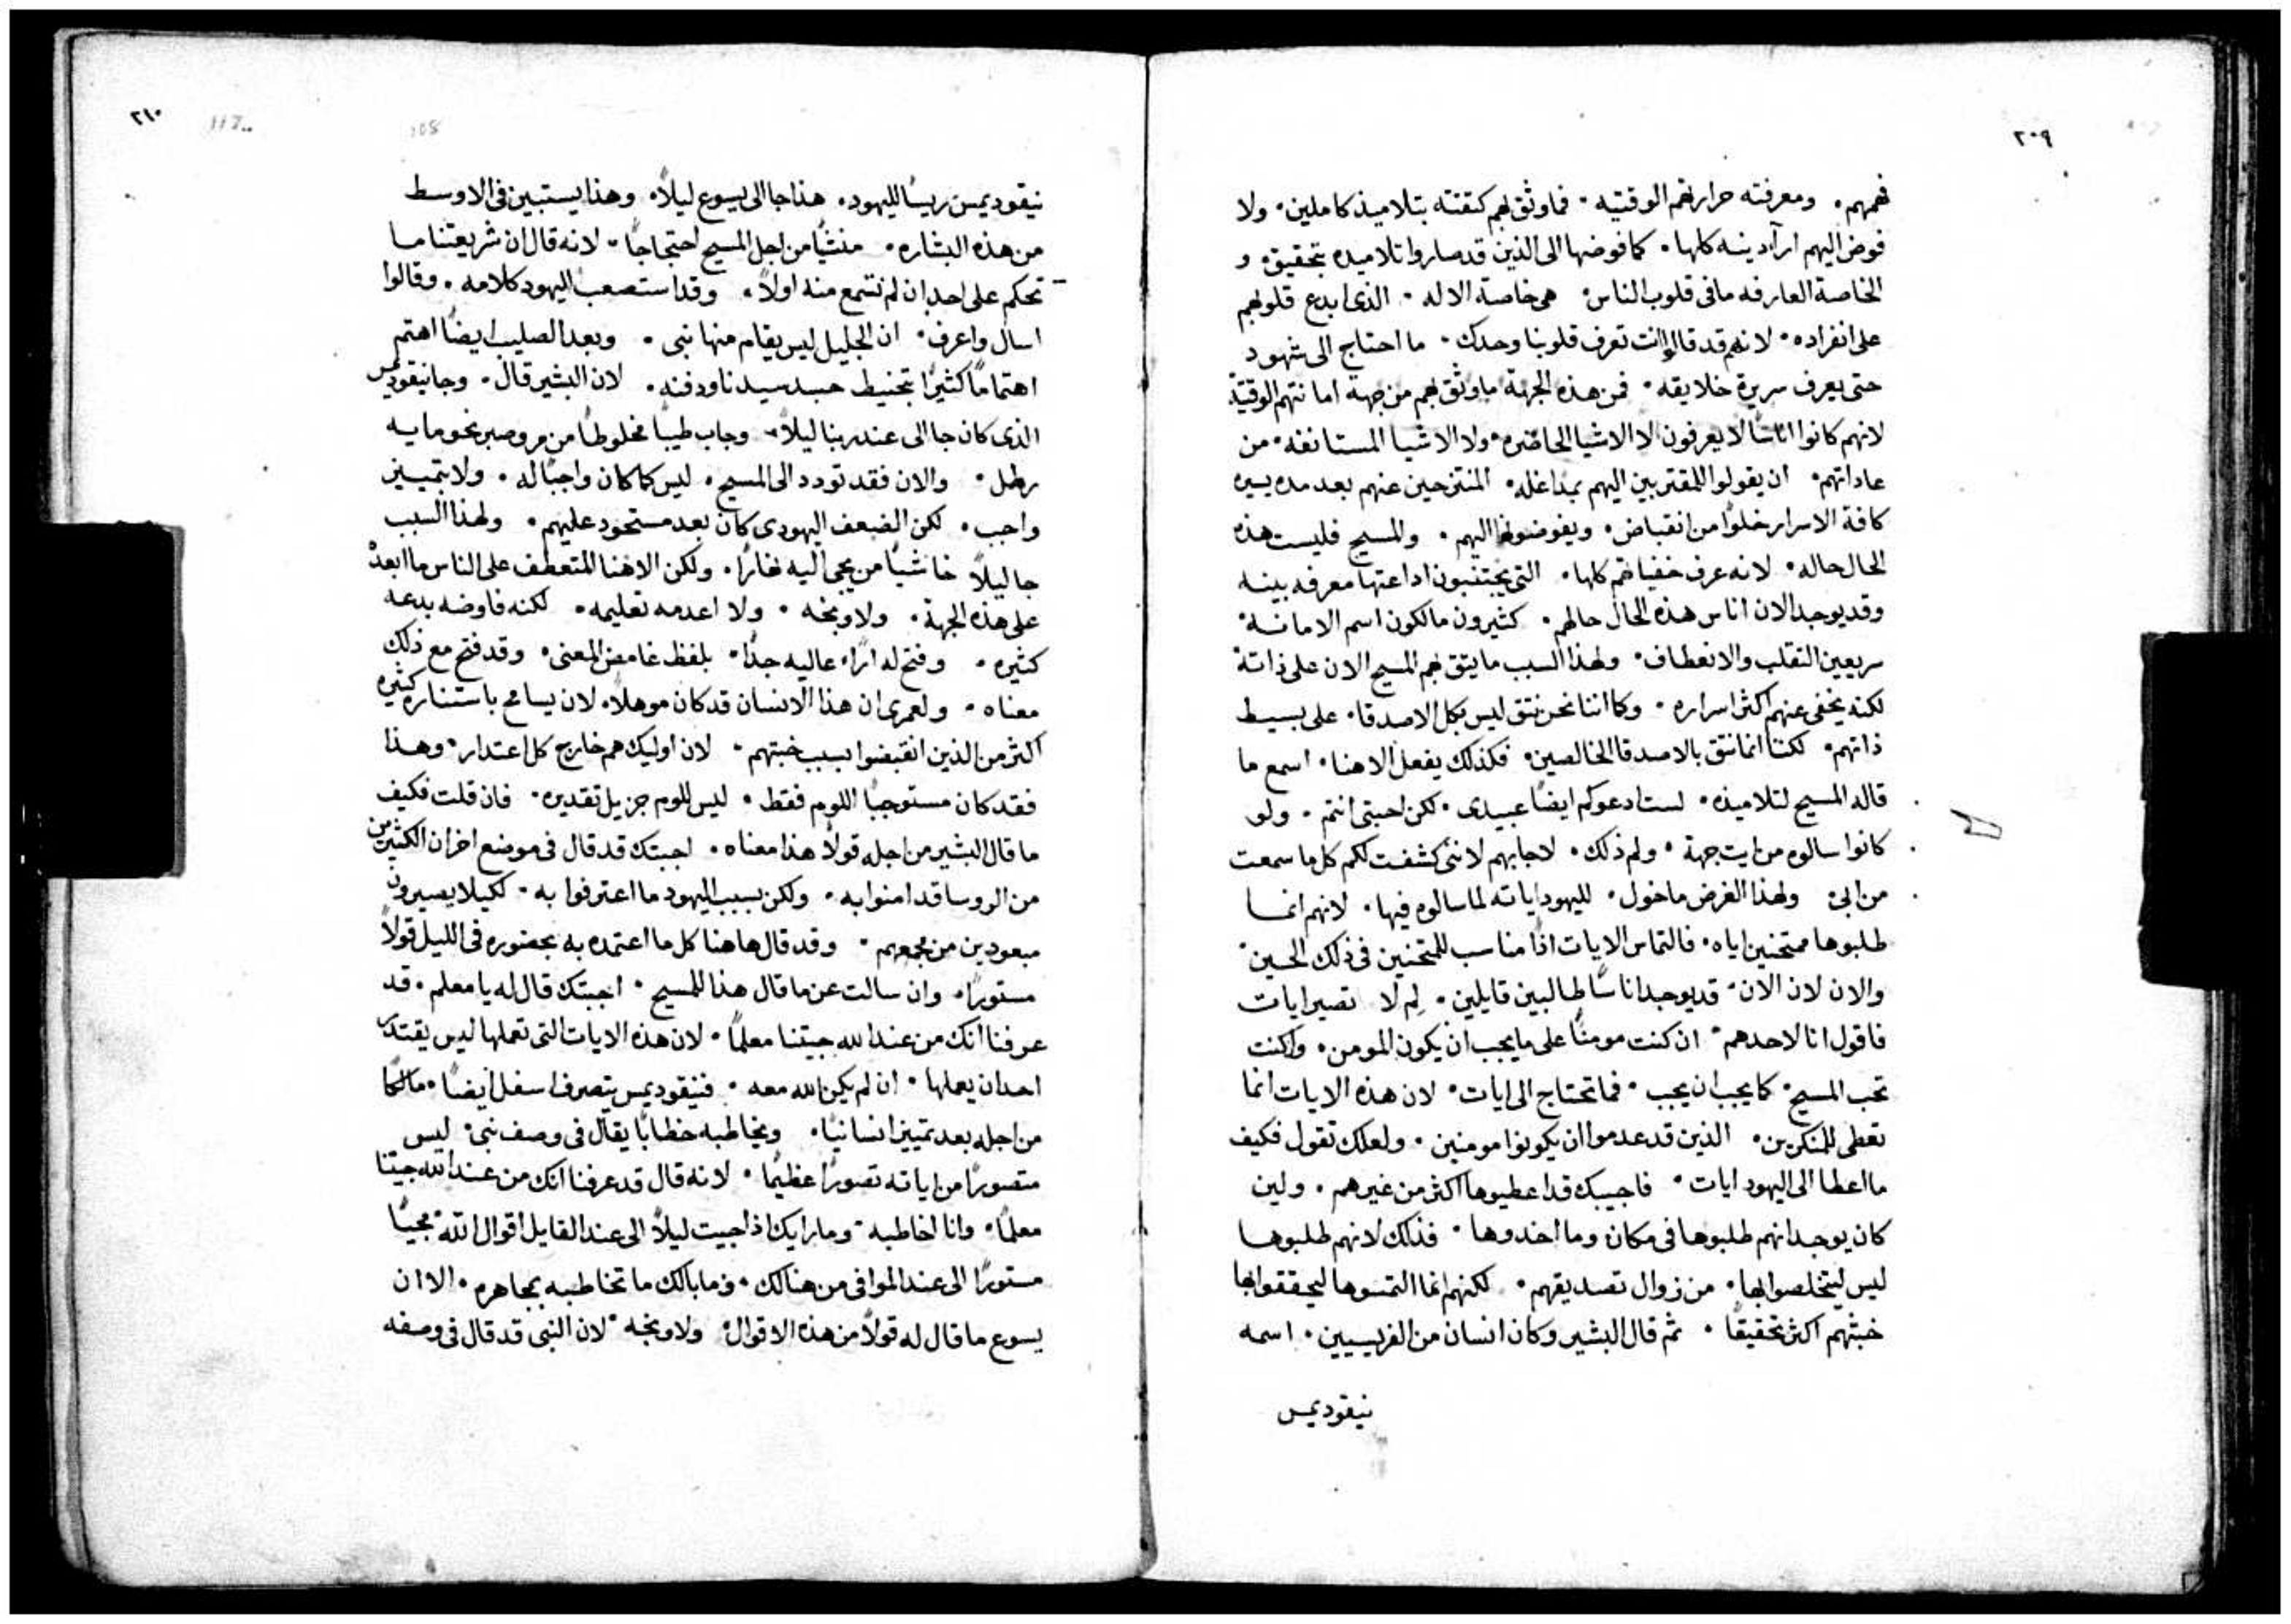 ٢٠٩
فهمهم. ومعرفته حرارتهم الوقتيه. فما وثق بهم كثقته بتلاميذ كاملين. ولا
فوض اليهم ارآ دينه كلها. كما فوضها الى الذين قد صاروا تلاميده بتحقيق. و
الخاصة العارفه ما فى قلوب الناس. هى خاصة الاله. الذى ابدع قلوبهم
على انفراده. لانهم قد قالوا انت تعرف قلوبنا وحدك. ما احتاج الى شهود
حتى يعرف سريرة خلايقه. فمن هذه الجهة ما وثق بهم من جهة امانتهم الوقتية
لانهم كانوا اناسًا لا يعرفون لا الاشيا الحاضره. ولا الاشيا المستانفه. من
عاداتهم. ان يقولوا للمقتربين اليهم بمداغله. المنتزحين عنهم بعد مده يسيره
كافة الاسرار خلوًا من انقباض. ويفوضونها اليهم. والمسيح فليست هذه
الحال حاله. لانه عرف خفياتهم كلها. التى يجتنبون اداعتها معرفه بينه
وقد يوجد الان اناس هذه الحال حالهم. كثيرون مالكون اسم الامانة.
سريعين التقلب والانعطاف. ولهذا السبب ما يثق بهم المسيح الان على ذاتة
لكنه يخفى عنهم اكثر اسراره. وكما اننا نحن نثق ليس بكل الاصدقا. على بسيط
ذاتهم. لكننا انما نثق بالاصدقا الخالصين. فكذلك يفعل الاهنا. اسمع ما
قاله المسيح لتلاميذه. لست ادعوكم ايضًا عبيدى. لكن احبتى انتم. ولو
كانوا سالوه من ايت جهة. ولم ذلك. لاجابهم لاننى كشفت لكم كل ما سمعت
من ابى. ولهذا الغرض ما خول. لليهود اياته لما سالوه فيها. لانهم انما
طلبوها ممتحنين اياه. فالتماس الايات اذًا مناسب للممتحنين فى ذلك الحين.
والان لان الان. قد يوجد اناسًا طالبين قايلين. لِم لا تصير ايات
فاقول انا لاحدهم. ان كنت مومنًا على ما يجب ان يكون المومن. وان كنت
تحب المسيح. كما يجب ان يحب. فما تحتاج الى ايات. لان هذه الايات انما
تعطى للمنكرين. الذين قد عدموا ان يكونوا مومنين. ولعلك تقول فكيف
ما اعطا الى اليهود ايات. فاجيبك قد اعطيوها اكثر من غيرهم. ولين
كان يوجد انهم طلبوها فى مكان وما اخدوها. فذلك لانهم طلبوها
ليس ليتخلصوا بها. من زوال تصديقهم. لكنهم انما التمسوها ليحققوا بها
خبثهم اكثر تحقيقًا. ثم قال البشير وكان انسان من الفريسيين. اسمه
نيقوديمس
٢١٠
108
نيقوديمس ريسًا لليهود. هذا جا الى يسوع ليلاً. وهذا يستبين فى الاوسط
من هذه البشاره. منشيًا من اجل المسيح احتجاجًا. لانه قال ان شريعتنا ما
تحكم على احد ان لم تسمع منه اولاً. وقد استصعب اليهود كلامه. وقالوا
اسال واعرف. ان الجليل ليس يقام منها نبى. وبعد الصليب ايضًا اهتم
اهتمامًا كثيرًا بتحنيط جسد سيدنا ودفنه. لان البشير قال. وجا نيقوديمس
الذى كان جا الى عند ربنا ليلاً. وجاب طيبًا مخلوطًا من مر وصبر نحو مايه
رطل. والان فقد تودد الى المسيح. ليس كما كان واجبًا له. ولا بتمييز
واجب. لكن الضعف اليهودى كان بعد مستحود عليهم. ولهذا السبب
جا ليلاً خاشيًا من يجى اليه نهارًا. ولكن الاهنا المتعطف على الناس ما ابعده
على هذه الجهة. ولا وبخه. ولا اعدمه تعليمه. لكنه فاوضه بدعه
كثيره. وفتح له ارًا عاليه جدًا. بلفظ غامض المعنى. وقد فتح مع ذلك
معناه. ولعمرى ان هذا الانسان قد كان موهلاً. لان يسامح باستناره كثيره
اكثر من الذين انقبضوا بسبب خبثهم. لان اوليك هم خارج كل اعتدار. وهذا
فقد كان مستوجبًا اللوم فقط. ليس للوم جزيل تقديره. فان قلت فكيف
ما قال البشير من اجله قولاً هذا معناه. اجبتك قد قال فى موضع اخر ان الكثيرين
من الروسا قد امنوا به. ولكن بسبب اليهود ما اعترفوا به. لكيلا يصيرون
مبعودين من مجمعهم. وقد قال هاهنا كل ما اعتمده به بحضوره فى الليل قولاً
مستورًا. وان سالت عن ما قال هذا للمسيح. اجبتك قال له يا معلم. قد
عرفنا انك من عند الله جيتنا معلمًا. لان هذه الايات التى تعملها ليس يقتدر
احد ان يعملها. ان لم يكن الله معه. فنيقوديمس يتصرف اسفل ايضًا. مالكًا
من اجله بعد تمييزًا انسانيًا. ويخاطبه خطابًا يقال فى وصف نبى. ليس
متصورًا من اياته تصورًا عظيمًا. لانه قال قد عرفنا انك من عند الله جيتنا
معلمًا. وانا اخاطبه. وما رايك اذا جيت ليلاً الى عند القايل اقوال الله. مجيًا
مستورًا الى عند الموافى من هنالك. وما بالك ما تخاطبه بمجاهره. الا ان
يسوع ما قال له قولاً من هذه الاقوال. ولا وبخه. لان النبى قد قال فى وصفه